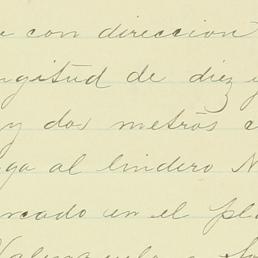 e con direccion
ngitud de diez y
y dos metros c
ga al lindero N
rcado en el pla